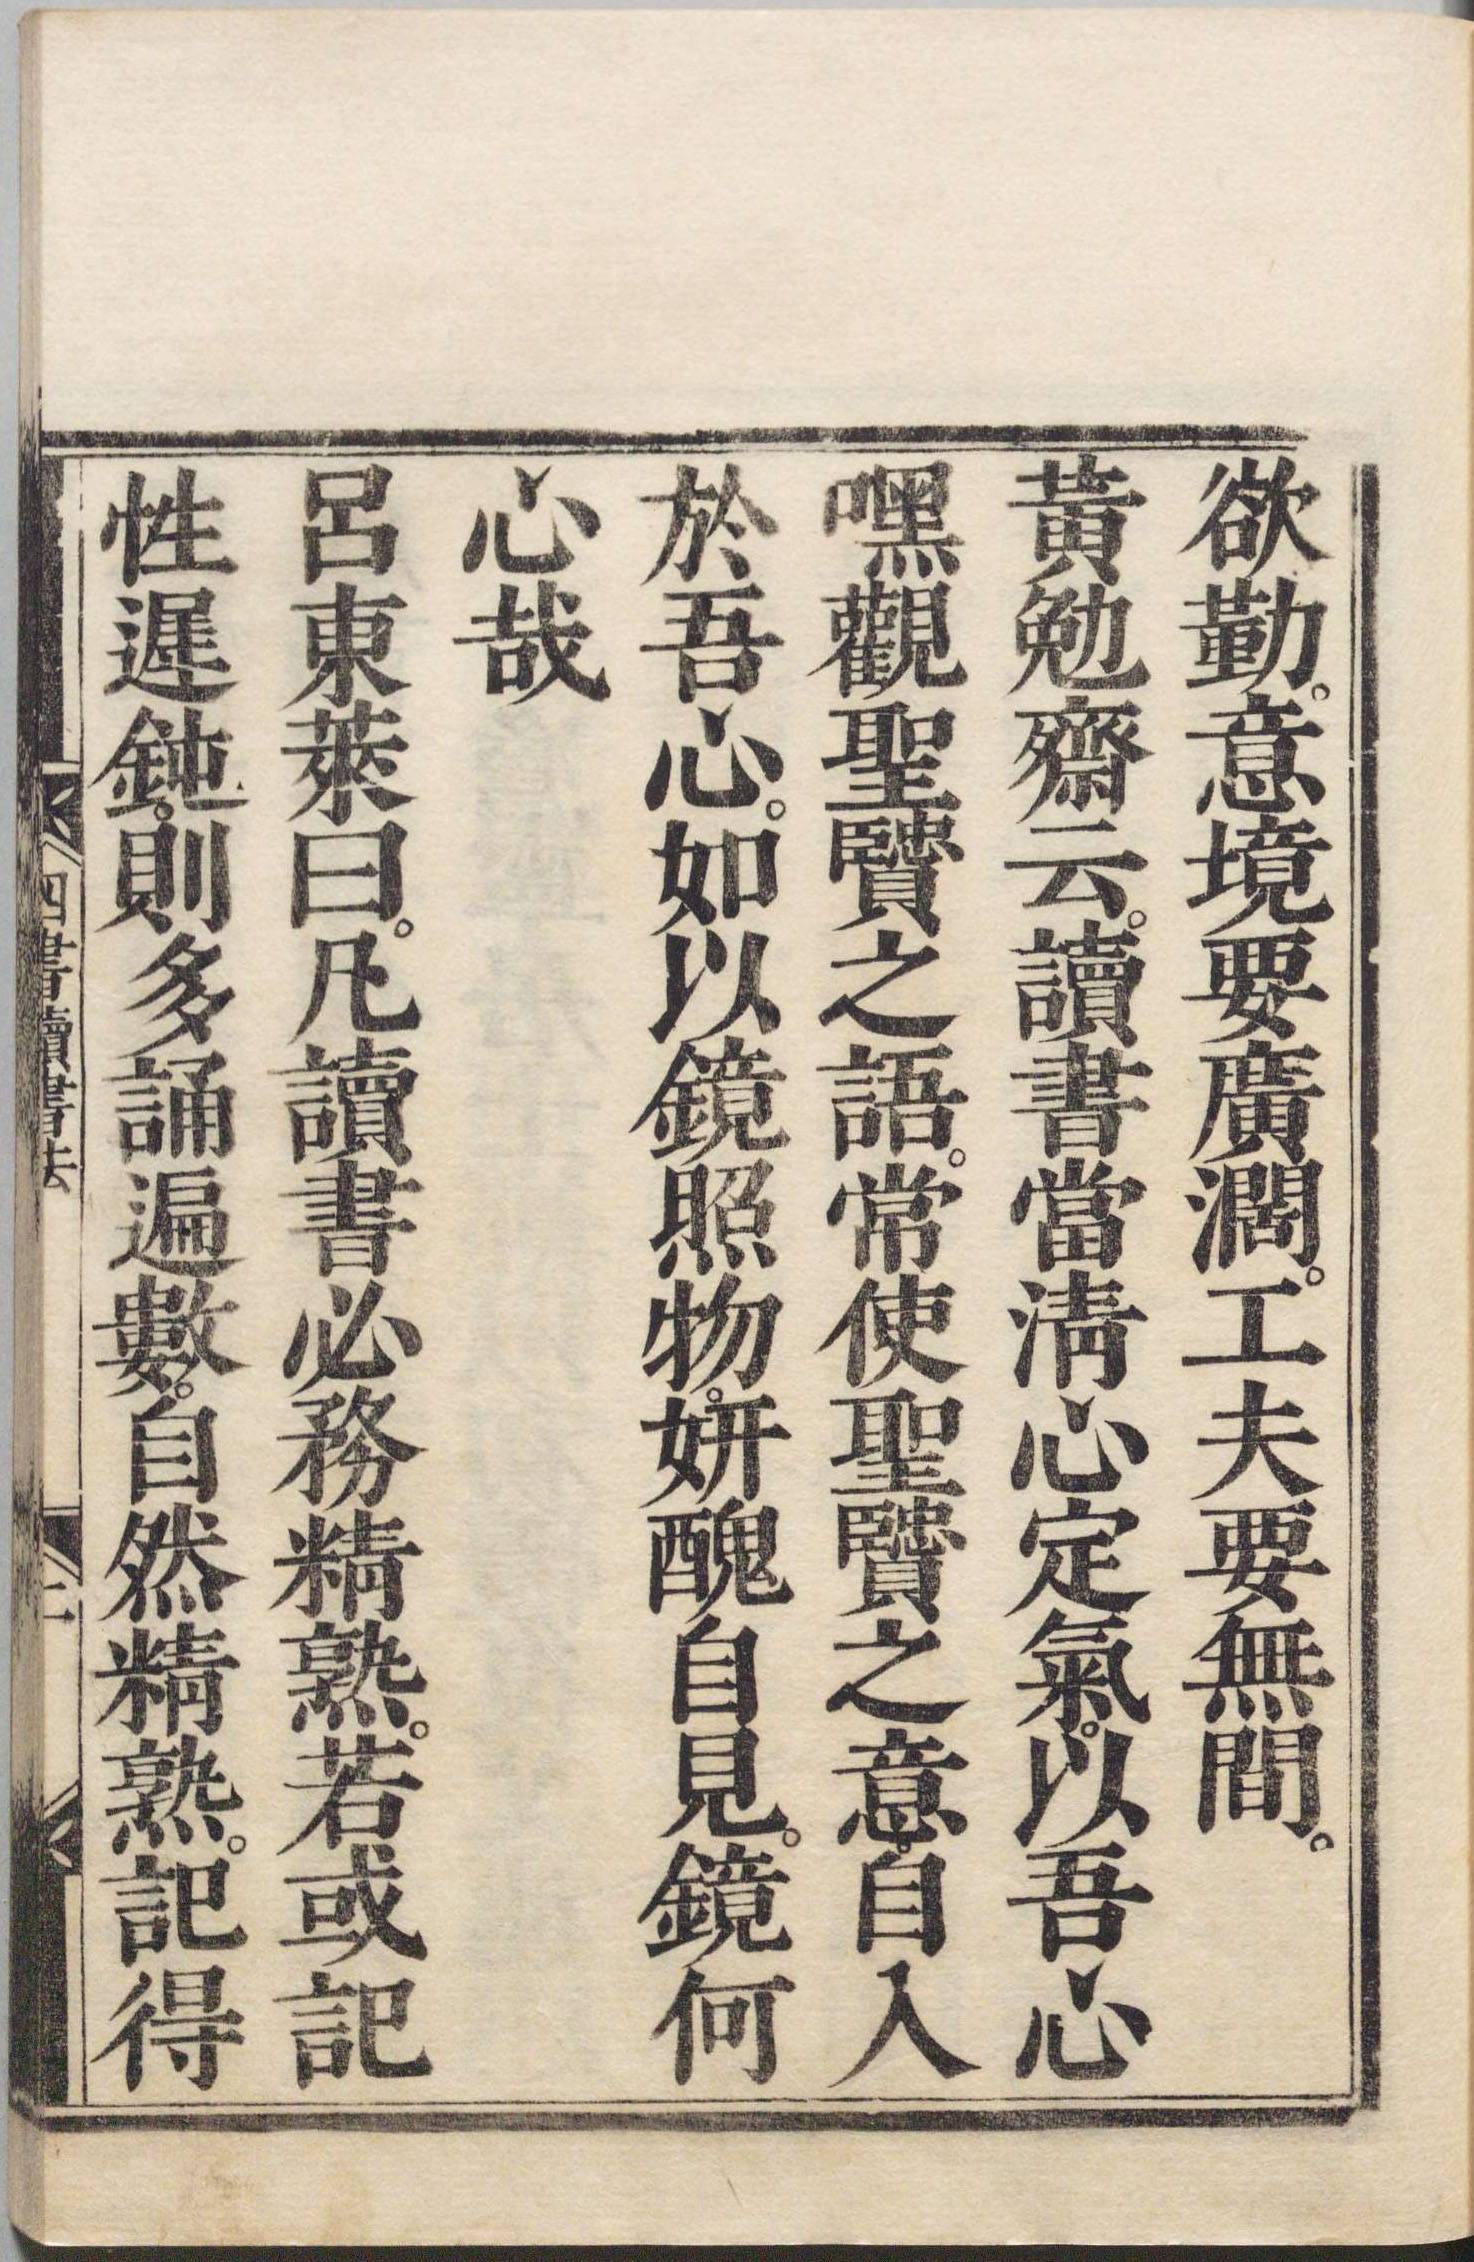 欲勤。意境要廣濶。工夫要無間。
黃勉齋云。讀書當淸心定氣。以吾心
嘿觀聖賢之語。常使聖賢之意。自入
於吾心。如以鏡照物。妍醜自見。鏡何
心哉
呂東萊曰。凡讀書必務精熟。若或記
性遲鈍。則多誦遍數。自然精熟。記得
四書讀書法
二